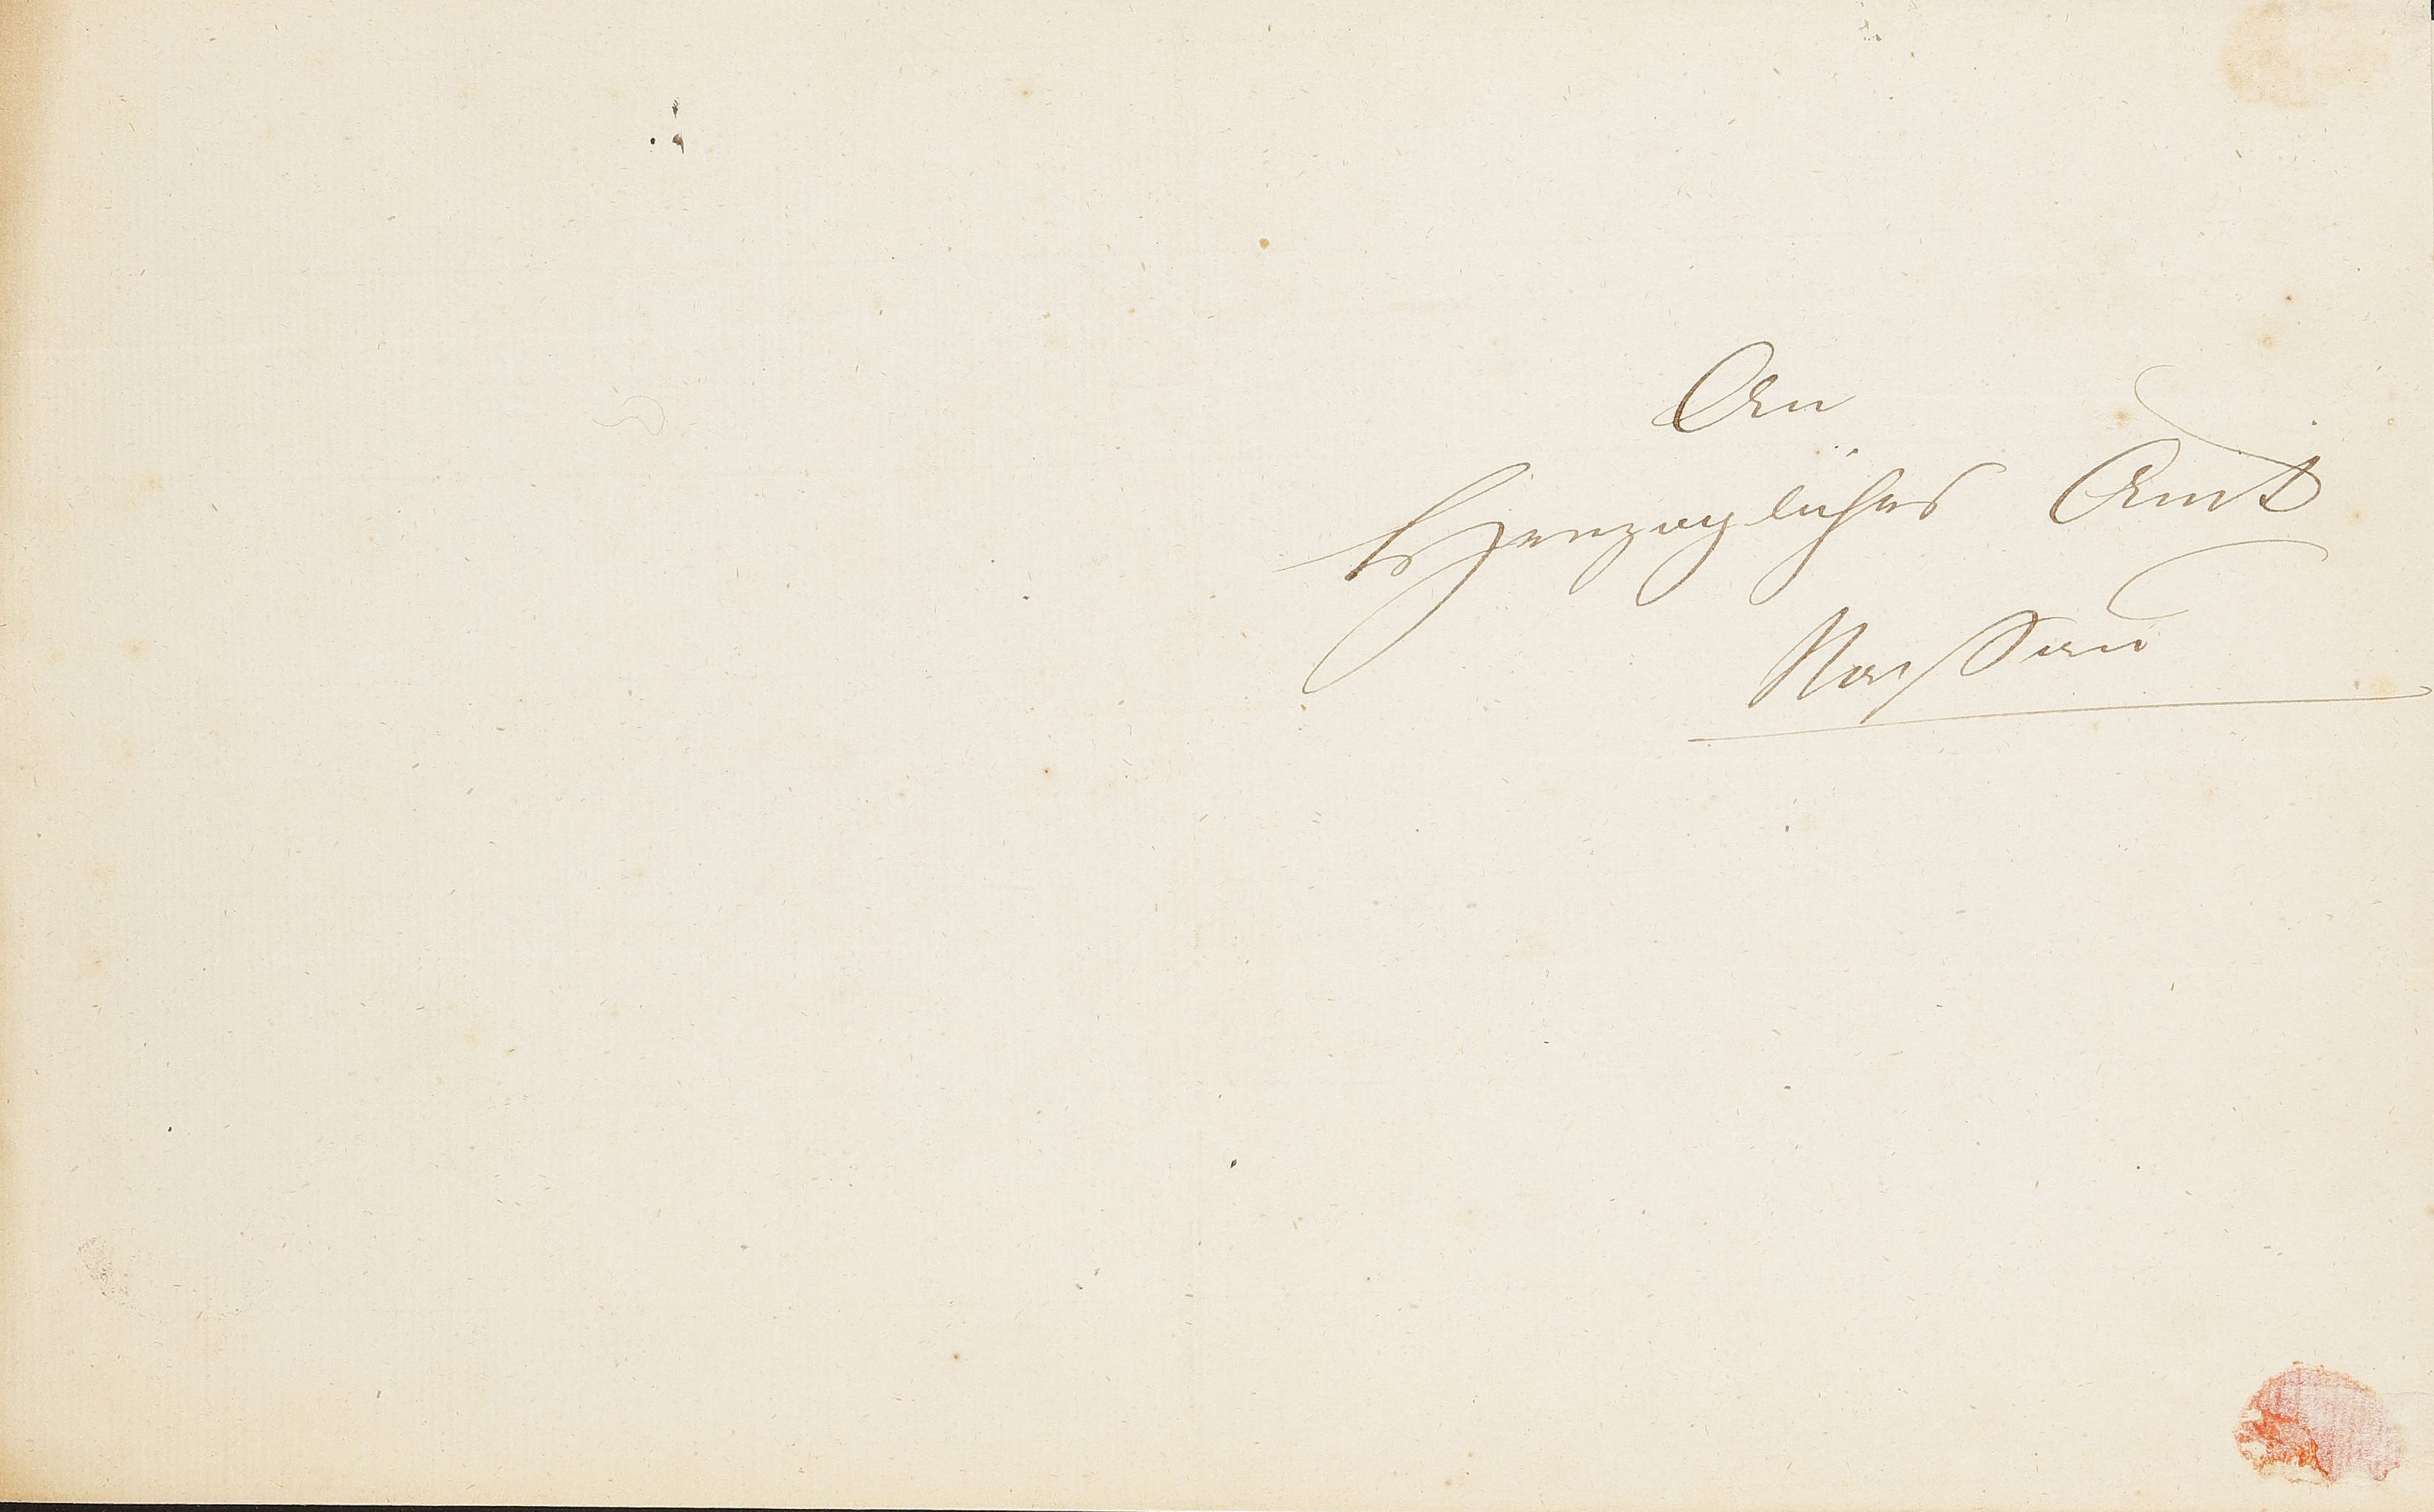 An
Herzogliches Amt
Nassau